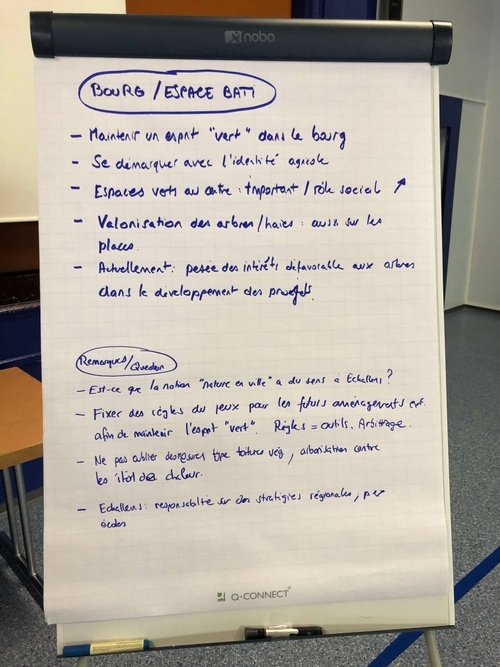 nobo
BOURG / ESPACE BATI
- Maintenir un esprit "vert" dans le bourg
- Se démarquer avec l'identité agricole
- Espaces verts au centre : important / rôle social ↗
- Valorisation des arbres/haies : aussi sur les
places.
- Actuellement : pesée des intérêts défavorable aux arbres
dans le développement des projets.
Remarques/Question
- Est-ce que la notion "nature en ville" a du sens à Echallens ?
- Fixer des règles du jeux pour les futurs aménagements
afin de maintenir l'esprit "vert". Règles = outils. Arbitrage.
- Ne pas oublier des mesures type toitures vég, arborisation contre
les îlot de chaleur.
- Echallens : responsabilité sur des stratégies régionales,
écoles
Q-CONNECT